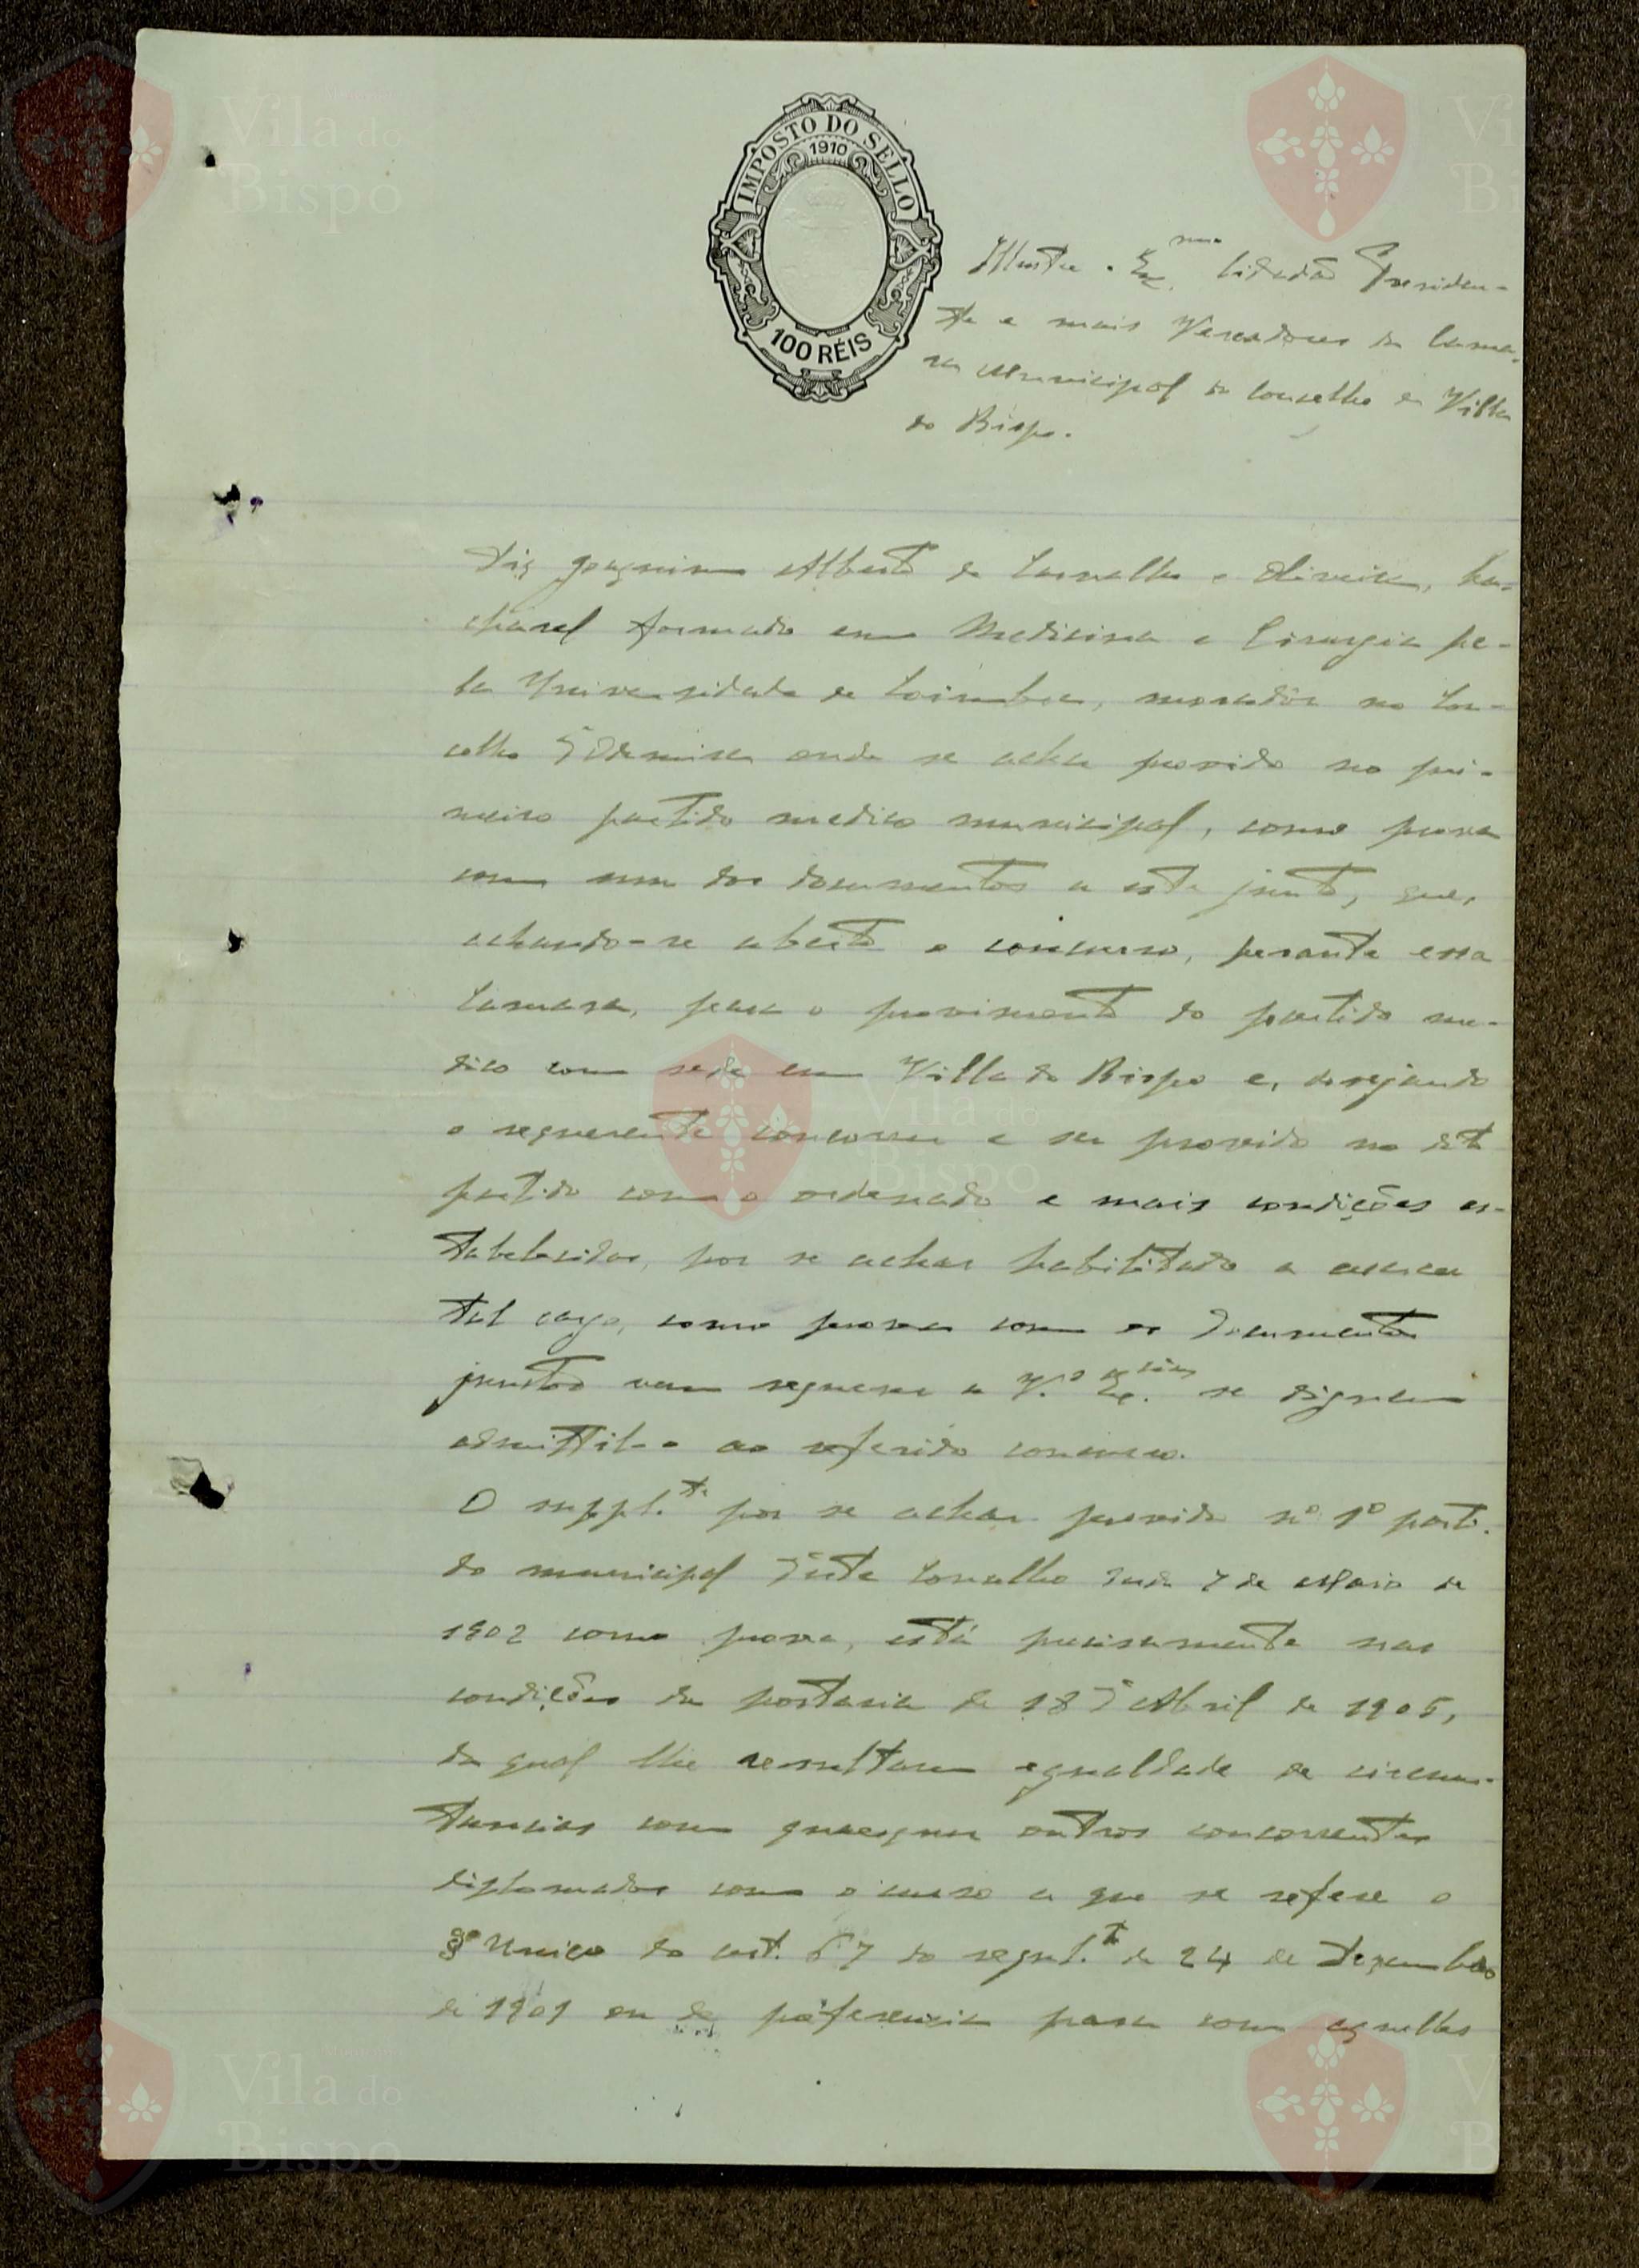 IMPOSTO DO SELLO
1910
100 RÉIS
Illustre e Ex.mo Cidadão Presiden-
te e mais Vereadores da Cama-
ra Municipal do Concelho de Villa
do Bispo.
Diz Joaquim Alberto de Carvalho e Oliveira, ba-
charel formado em Medicina e Cirurgia pe-
la Universidade de Coimbra, morador no Con-
celho d'Odemira onde se acha provido no pri-
meiro partido medico municipal, como prova
com um dos documentos a este junto, que,
achando-se aberto o concurso, perante essa
Camara, para o provimento do partido me-
dico com sede em Villa do Bispo e, desejando
o requerente concorrer e ser provido no dito
partido com o ordenado e mais condições es-
tabelecidas, por se achar habilitado a exercer
tal cargo, como prova com os documentos
juntos vem requerer a V.as Ex.cias se dignem
admittil-o ao referido concurso.
O suppl.te por se achar provido no 1º parti-
do municipal d'este Concelho desde 7 de Maio de
1902 como prova, está precisamente nas
condições da portaria de 18 d'Abril de 1905,
da qual lhe resultam egualdade de circums-
tancias com quaesquer outros concorrentes
diplomados com o curso a que se refere o
§º Unico do art. 67 do regul.to de 24 de Dezembro
de 1901 ou de preferencia para com aquelles
Vila do
Bispo
Vila do
Bispo
Vila do
Bispo
Vila do
Bispo
Vila do
Bispo